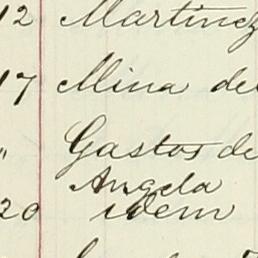 12 Martinez
17 Mina de
" Gastos de
Angela
20 idem